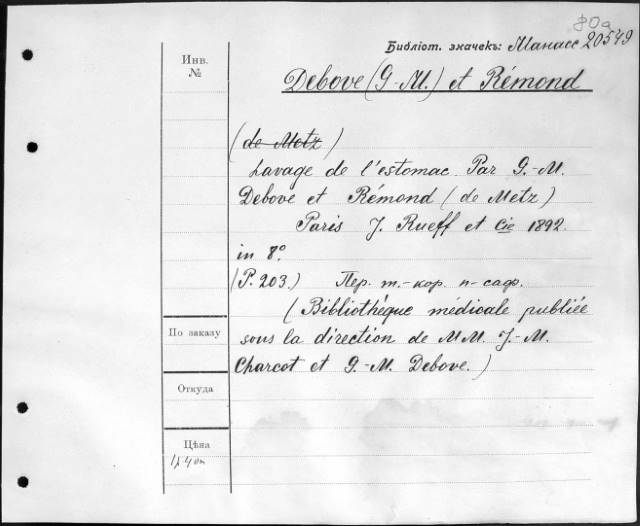 80а
Библіот. значекъ: Манасс 20549
Инв.
№
Debove (G.-M.) et Rémond
(de Metz)
Lavage de l'estomac. Par G.-M.
Debove et Rémond (de Metz)
Paris J. Rueff et Cie 1892.
in 8°.
(P. 203.) Пер. т.-кор. п-саф.
(Bibliothèque médicale publiée
По заказу
sous la direction de MM. J.-M.
Charcot et G.-M. Debove.)
Откуда
Цѣна